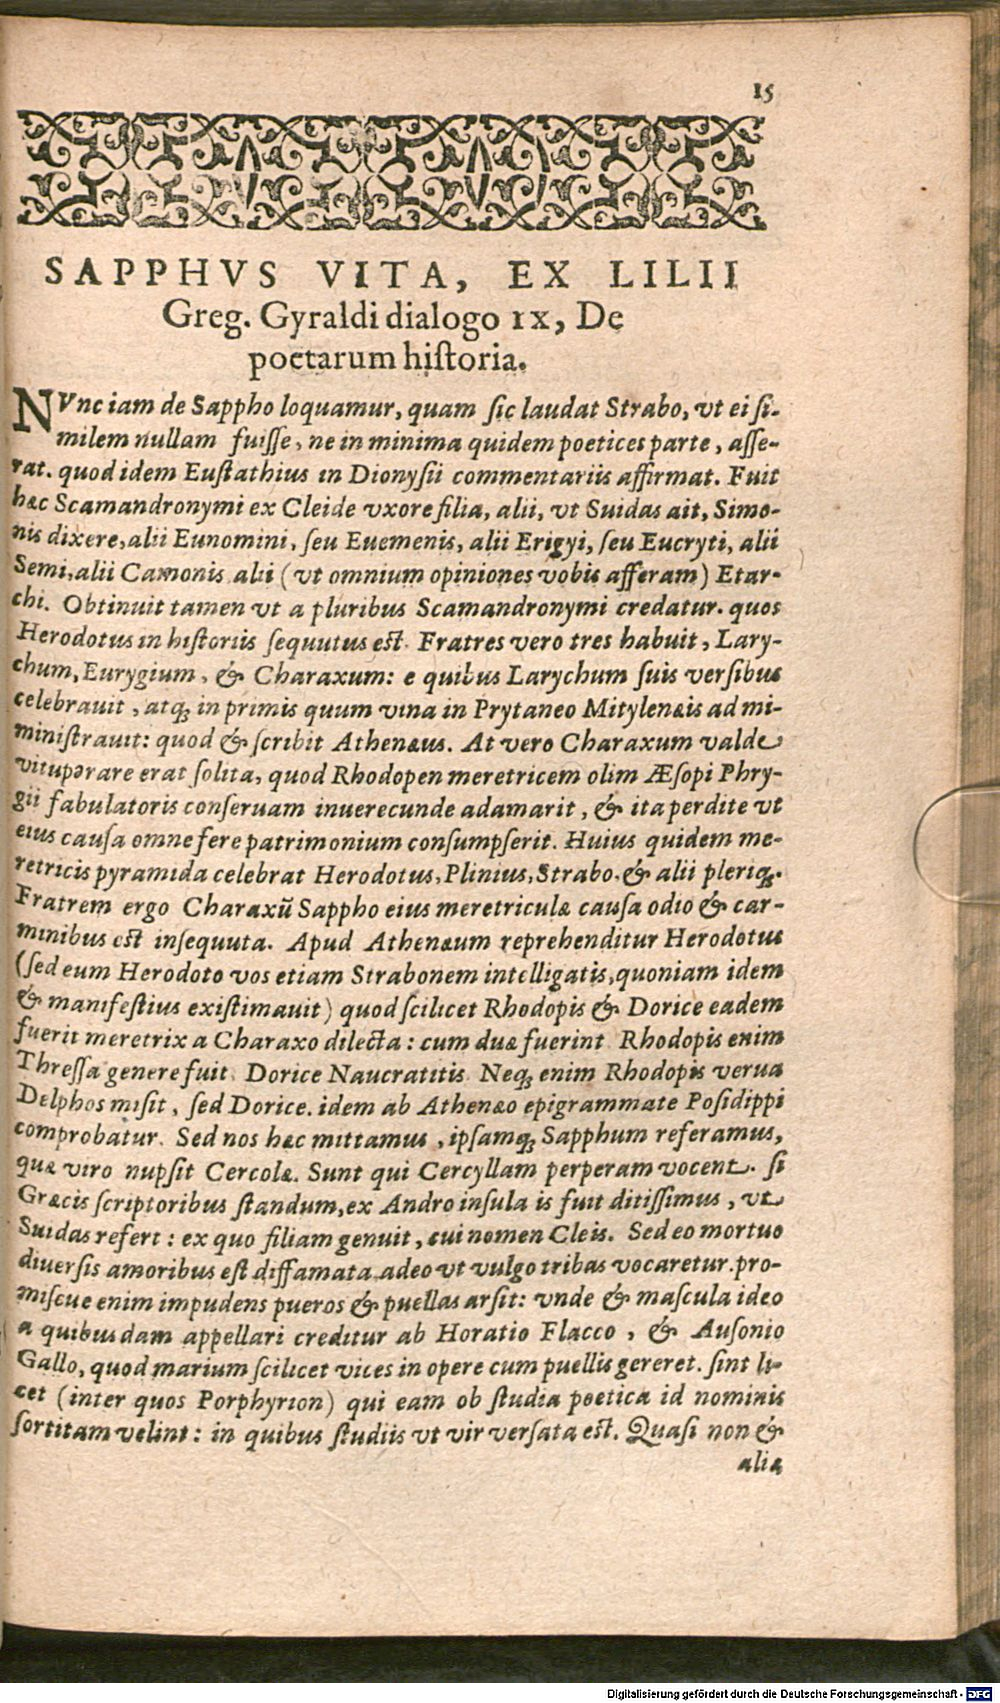 15
SAPPHVS VITA, EX LILII
Greg. Gyraldi dialogo IX, De
poetarum historia.
NVnc iam de Sappho loquamur, quam sic laudat Strabo, vt ei si-
milem nullam fuisse, ne in minima quidem poetices parte, asse-
rat. quod idem Eustathius in Dionysii commentariis affirmat. Fuit
hæc Scamandronymi ex Cleide vxore filia, alii, vt Suidas ait, Simo-
nis dixere, alii Eunomini, seu Euemenis, alii Erigyi, seu Eucryti, alii
Semi, alii Camonis alii (vt omnium opiniones vobis afferam) Etar-
chi. Obtinuit tamen vt a pluribus Scamandronymi credatur. quos
Herodotus in historiis sequutus est. Fratres vero tres habuit, Lary-
chum, Eurygium, & Charaxum: e quibus Larychum suis versibus
celebrauit, atq; in primis quum vina in Prytaneo Mitylenæis admi-
ministrauit: quod & scribit Athenæus. At vero Charaxum valde
vituperare erat solita, quod Rhodopen meretricem olim Æsopi Phry-
gii fabulatoris conseruam inuerecunde adamarit, & ita perdite vt
eius causa omne fere patrimonium consumpserit. Huius quidem me-
retricis pyramida celebrat Herodotus, Plinius, Strabo, & alii pleriq;.
Fratrem ergo Charaxū Sappho eius meretriculæ causa odio & car-
minibus est insequuta. Apud Athenæum reprehenditur Herodotus
(sed eum Herodoto vos etiam Strabonem intelligatis, quoniam idem
& manifestius existimauit) quod scilicet Rhodopis & Dorice eadem
fuerit meretrix a Charaxo dilecta: cum duæ fuerint Rhodopis enim
Thressa genere fuit, Dorice Naucratitis. Neq; enim Rhodopis verua
Delphos misit, sed Dorice. idem ab Athenæo epigrammate Posidippi
comprobatur. Sed nos hæc mittamus, ipsamq; Sapphum referamus,
quæ viro nupsit Cercolæ. Sunt qui Cercyllam perperam vocent. si
Græcis scriptoribus standum, ex Andro insula is fuit ditissimus, vt
Suidas refert: ex quo filiam genuit, cui nomen Cleis. Sed eo mortuo
diuersis amoribus est diffamata adeo vt vulgo tribas vocaretur. pro-
miscue enim impudens pueros & puellas arsit: vnde & mascula ideo
a quibusdam appellari creditur ab Horatio Flacco, & Ausonio
Gallo, quod marium scilicet vices in opere cum puellis gereret. sint li-
cet (inter quos Porphyrion) qui eam ob studia poetica id nominis
sortitam velint: in quibus studiis vt vir versata est. Quasi non &
alia
Digitalisierung gefördert durch die Deutsche Forschungsgemeinschaft - DFG